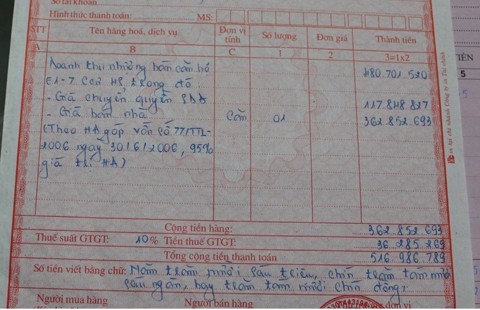 Số tài khoản:
Hình thức thanh toán: MS:
STT Tên hàng hoá, dịch vụ Đơn vị tính Số lượng Đơn giá Thành tiền
A B C 1 2 3=1x2
Doanh thu nhượng bán căn hộ 480.701.520
E1-7. Cơ HS trong đó:
- Giá chuyển quyền SDĐ 117.848.827
- Giá bán nhà Căn 01 362.852.693
(Theo HĐ góp vốn số 77/TTL-
2006 ngày 30/6/2006, 95%
giá trị HĐ)
Cộng tiền hàng: 362 852 693
Thuế suất GTGT: 10% Tiền thuế GTGT: 36 285 269
Tổng cộng tiền thanh toán 516.986.789
Số tiền viết bằng chữ: Năm trăm mười sáu triệu, chín trăm tám mươi
sáu ngàn, bảy trăm tám mươi chín đồng
Người mua hàng Người bán hàng đơn vị
TIỀN
5